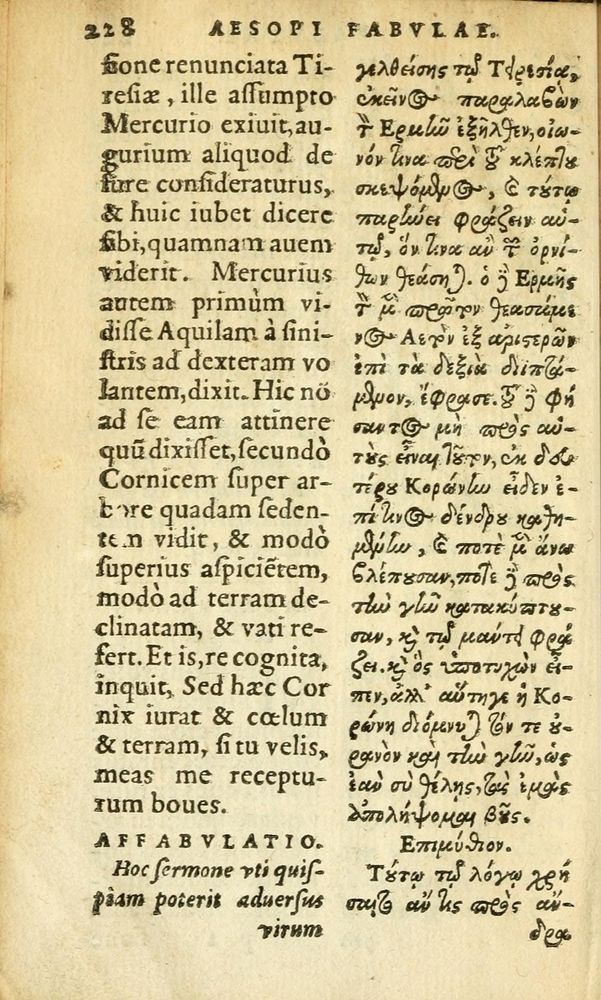 228 AESOPI FABVLAE.
ſione renunciata Ti-
reſiæ, ille aſſumpto
Mercurio exiuit, au-
gurium aliquod de
fure conſideraturus,
& huic iubet dicere
ſibi, quamnam auem
viderit. Mercurius
autem primùm vi-
diſſe Aquilam à ſini-
ſtris ad dexteram vo
lantem, dixit. Hic nō
ad ſe eam attinere
quū dixiſſet, ſecundò
Cornicem ſuper ar-
bore quadam ſeden-
tem vidit, & modò
ſuperius aſpiciētem,
modò ad terram de-
clinatam, & vati re-
fert. Et is, re cognita,
inquit, Sed hæc Cor
nix iurat & cœlum
& terram, ſi tu velis,
meas me receptu-
rum boues.
AFFABVLATIO.
Hoc ſermone vti quiſ-
piam poterit aduerſus
virum
γελθείσης τῷ Τειρεσίᾳ,
ἐκεῖνος παραλαβὼν
τὸν Ἑρμῆν ἐξῆλθεν, οἰω-
νόν τινα περὶ τοῦ κλέπτου
σκεψόμενος, καὶ τούτῳ
παρῄνει φράζειν αὐ-
τῷ, ὅν τινα ἂν τῶν ὀρνί-
θων θεάσηται. ὁ δὲ Ἑρμῆς
τὸ μὲν πρῶτον θεασάμε
νος Ἀετὸν ἐξ ἀριστερῶν
ἐπὶ τὰ δεξιὰ διιπτά-
μενον, ἔφρασε. τοῦ δὲ φή
σαντος μὴ πρὸς αὐ-
τοὺς εἶναι τοῦτον, ἐκ δευ
τέρου Κορώνην εἶδεν ἐ-
πί τινος δένδρου καθη-
μένην, καὶ ποτὲ μὲν ἄνω
βλέπουσαν, ποτὲ δὲ πρὸς
τὴν γῆν κατακύπτου-
σαν, καὶ τῷ μάντει φρά
ζει. καὶ ὃς ὑποτυχὼν εἶ-
πεν, ἀλλ' αὕτηγε ἡ Κο-
ρώνη διόμνυται τόν τε οὐ-
ρανὸν καὶ τὴν γῆν, ὡς
ἐὰν σὺ θέλῃς, τὰς ἐμὰς
ἀπολήψομαι βοῦς.
Ἐπιμύθιον.
Τούτῳ τῷ λόγῳ χρή
σαιτο ἄν τις πρὸς ἄν-
δρα